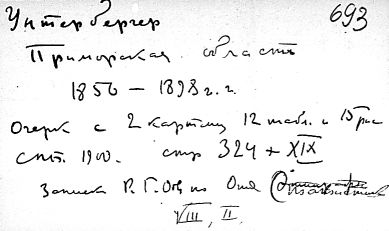 Унтербергер 693
Приморская область
1856 — 1898 г.г.
Очерк с 2 картами 12 табл. и 15 рис
СПб. 1900. стр 324 + XIX
Записки Р. Г. Общ по Отд
VIII, II.